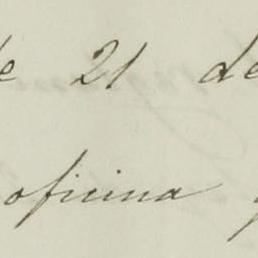 de 21 de
oficina